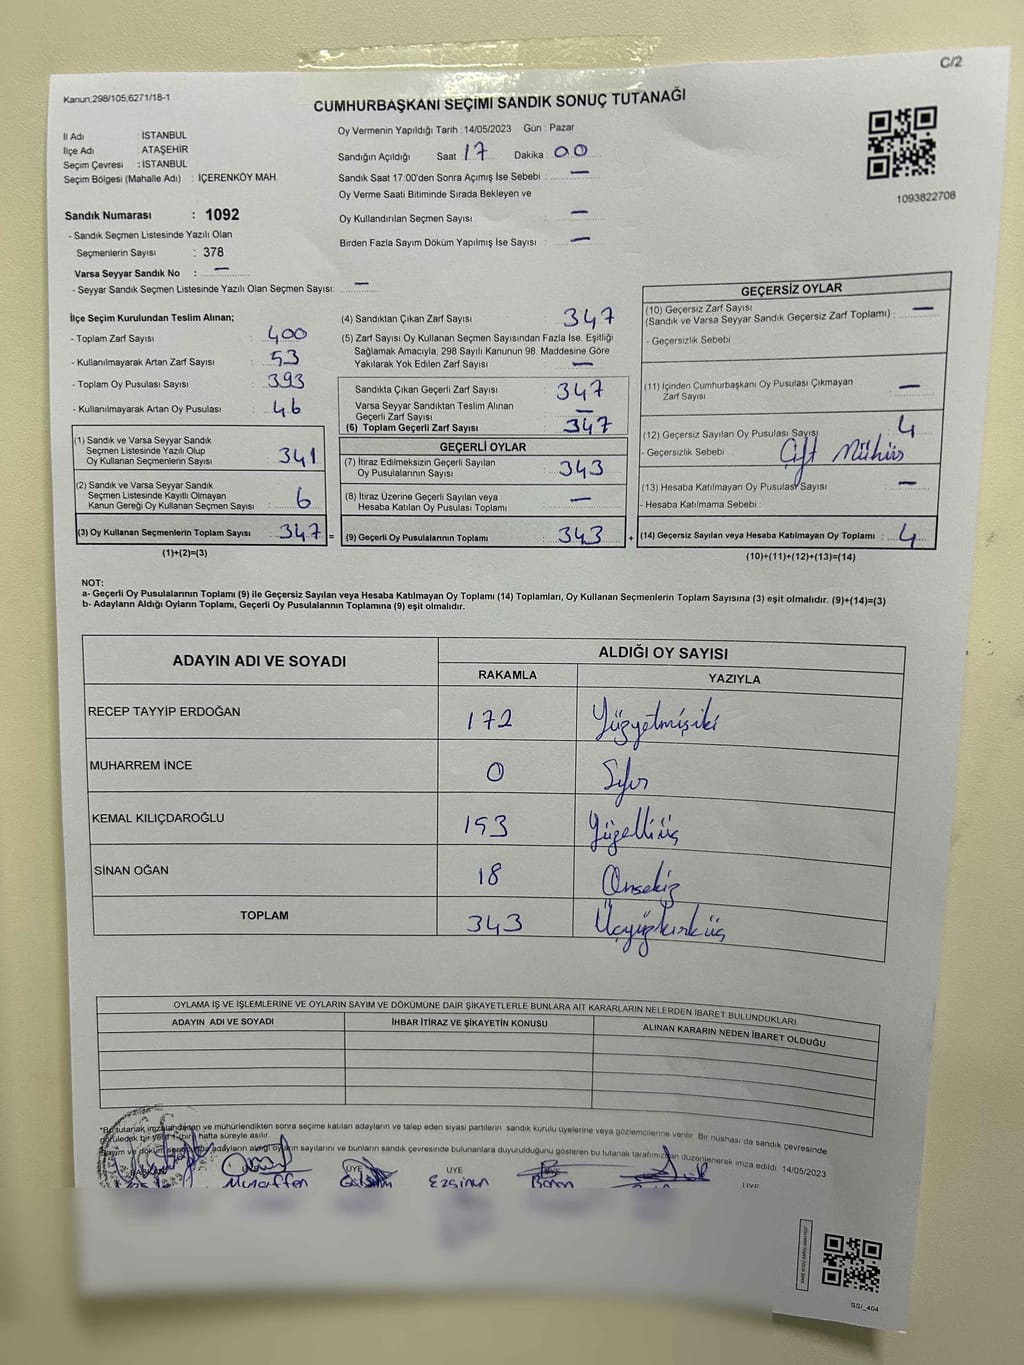 C/2
Kanun;298/105;6271/18-1
CUMHURBAŞKANI SEÇİMİ SANDIK SONUÇ TUTANAĞI
İl Adı : İSTANBUL
İlçe Adı : ATAŞEHİR
Seçim Çevresi : İSTANBUL
Seçim Bölgesi (Mahalle Adı) : İÇERENKÖY MAH.
Sandık Numarası : 1092
- Sandık Seçmen Listesinde Yazılı Olan
Seçmenlerin Sayısı : 378
Varsa Seyyar Sandık No : —
- Seyyar Sandık Seçmen Listesinde Yazılı Olan Seçmen Sayısı: —
Oy Vermenin Yapıldığı Tarih : 14/05/2023 Gün : Pazar
Sandığın Açıldığı Saat 17 Dakika 00
Sandık Saat 17:00'den Sonra Açımış İse Sebebi : —
Oy Verme Saati Bitiminde Sırada Bekleyen ve
Oy Kullandırılan Seçmen Sayısı : —
Birden Fazla Sayım Döküm Yapılmış İse Sayısı : —
1093822708
İlçe Seçim Kurulundan Teslim Alınan;
- Toplam Zarf Sayısı : 400
- Kullanılmayarak Artan Zarf Sayısı : 53
- Toplam Oy Pusulası Sayısı : 393
- Kullanılmayarak Artan Oy Pusulası : 46
(1) Sandık ve Varsa Seyyar Sandık
Seçmen Listesinde Yazılı Olup
Oy Kullanan Seçmenlerin Sayısı : 341
(2) Sandık ve Varsa Seyyar Sandık
Seçmen Listesinde Kayıtlı Olmayan
Kanun Gereği Oy Kullanan Seçmen Sayısı : 6
(3) Oy Kullanan Seçmenlerin Toplam Sayısı : 347 =
(1)+(2)=(3)
(4) Sandıktan Çıkan Zarf Sayısı : 347
(5) Zarf Sayısı Oy Kullanan Seçmen Sayısından Fazla İse, Eşitliği
Sağlamak Amacıyla, 298 Sayılı Kanunun 98. Maddesine Göre
Yakılarak Yok Edilen Zarf Sayısı : —
Sandıkta Çıkan Geçerli Zarf Sayısı : 347
Varsa Seyyar Sandıktan Teslim Alınan
Geçerli Zarf Sayısı : —
(6) Toplam Geçerli Zarf Sayısı : 347
GEÇERLİ OYLAR
(7) İtiraz Edilmeksizin Geçerli Sayılan
Oy Pusulalarının Sayısı : 343
(8) İtiraz Üzerine Geçerli Sayılan veya
Hesaba Katılan Oy Pusulası Toplamı : —
(9) Geçerli Oy Pusulalarının Toplamı : 343 +
GEÇERSİZ OYLAR
(10) Geçersiz Zarf Sayısı
(Sandık ve Varsa Seyyar Sandık Geçersiz Zarf Toplamı) : —
- Geçersizlik Sebebi :
(11) İçinden Cumhurbaşkanı Oy Pusulası Çıkmayan
Zarf Sayısı : —
(12) Geçersiz Sayılan Oy Pusulası Sayısı : 4
- Geçersizlik Sebebi : Çift Mühür
(13) Hesaba Katılmayan Oy Pusulası Sayısı : —
- Hesaba Katılmama Sebebi :
(14) Geçersiz Sayılan veya Hesaba Katılmayan Oy Toplamı : 4
(10)+(11)+(12)+(13)=(14)
NOT:
a- Geçerli Oy Pusulalarının Toplamı (9) ile Geçersiz Sayılan veya Hesaba Katılmayan Oy Toplamı (14) Toplamları, Oy Kullanan Seçmenlerin Toplam Sayısına (3) eşit olmalıdır. (9)+(14)=(3)
b- Adayların Aldığı Oyların Toplamı, Geçerli Oy Pusulalarının Toplamına (9) eşit olmalıdır.
ADAYIN ADI VE SOYADI ALDIĞI OY SAYISI
RAKAMLA YAZIYLA
RECEP TAYYİP ERDOĞAN 172 Yüzyetmişiki
MUHARREM İNCE 0 Sıfır
KEMAL KILIÇDAROĞLU 153 Yüzelliüç
SİNAN OĞAN 18 Onsekiz
TOPLAM 343 Üçyüzkırküç
OYLAMA İŞ VE İŞLEMLERİNE VE OYLARIN SAYIM VE DÖKÜMÜNE DAİR ŞİKAYETLERLE BUNLARA AİT KARARLARIN NELERDEN İBARET BULUNDUKLARI
ADAYIN ADI VE SOYADI İHBAR İTİRAZ VE ŞİKAYETİN KONUSU ALINAN KARARIN NEDEN İBARET OLDUĞU
*Bu tutanak imzalandıktan ve mühürlendikten sonra seçime katılan adayların ve talep eden siyasi partilerin sandık kurulu üyelerine veya gözlemcilerine verilir. Bir nüshası da sandık çevresinde
görülecek bir yere 1 (bir) hafta süreyle asılır.
adayların aldığı oyların sayılarını ve bunların sandık çevresinde bulunanlara duyurulduğunu gösteren bu tutanak tarafımızdan düzenlenerek imza edildi. 14/05/2023
ÜYE ÜYE ÜYE
Muzaffer
SGI_404